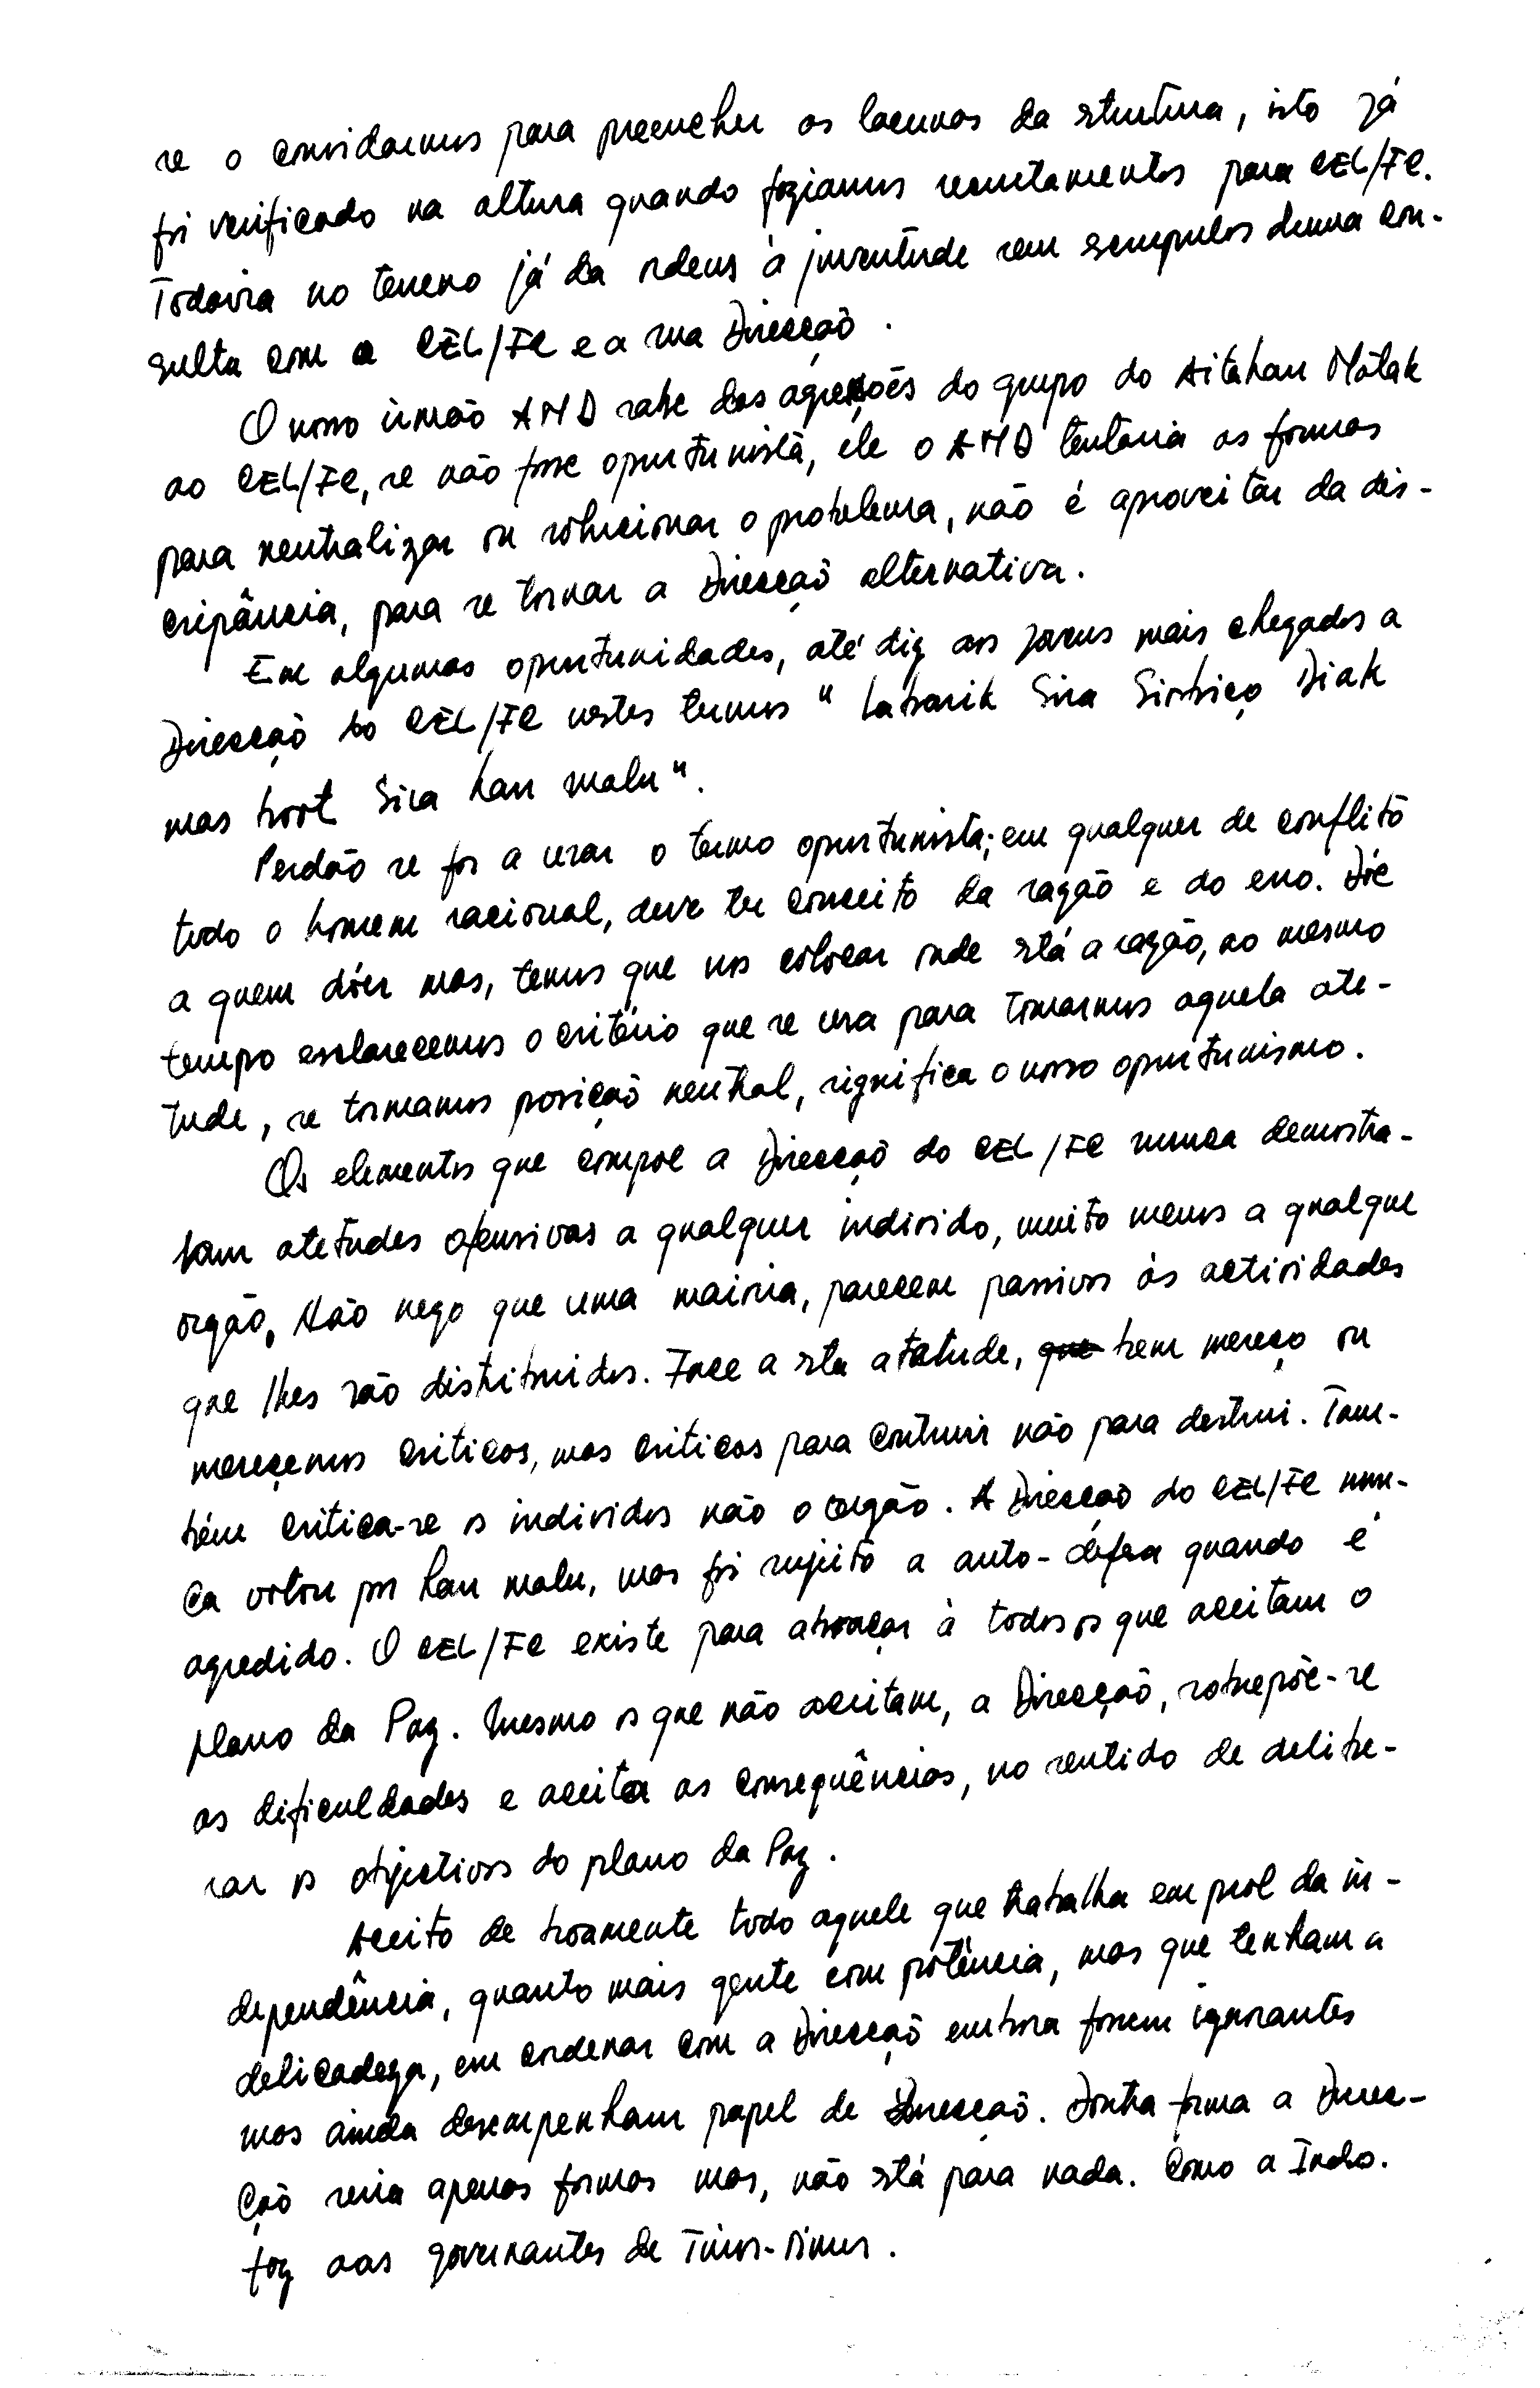 se o convidarmos para preencher as lacunas da strutura, isto já
foi verificado na altura quando faziamos recrutamentos para CEL/FC.
Todavia no terreno já da ordens à juventude sem scrupulos duma con-
sulta com a CEL/FC e a sua Direcção.
O nosso irmão AMD sabe das agressões do grupo do Aitahan Matak
ao CEL/FC, se não fosse oportunista, ele o AMD tentaria as formas
para neutralizar ou solucionar o problema, não é aproveitar da dis-
cripância, para se tornar a Direcção alternativa.
Em algumas oportunidades, até diz aos jovens mais chegados a
Direcção do CEL/FC nestes termos " Labarik Sira Sirbiço Diak
mas boot Sira han malu".
Perdão se for a usar o termo oportunista; em qualquer de conflito
todo o homem racional, deve ter conceito da razão e do erro. Dóe
a quem dóer mas, temos que nos colocar onde stá a razão, ao mesmo
tempo esclarecemos o critério que se usa para tomarmos aquela ate-
tude, se tomamos posição neutral, significa o nosso oportunismo.
Os elementos que compoe a Direcção do CEL/FC nunca demostra-
ram atetudes ofensivas a qualquer individo, muito menos a qualque
orgão, Não nego que uma maioria, parecem passivos às actividades
que lhes são distribuidos. Face a sta atatude, bem mereço ou
mereçemos criticas, mas criticas para contruir não para destrui. Tam-
bém critica-se os individos não o orgão. A Direcção do CEL/FC nun-
ca votou por han malu, mas foi sujeito a auto-defesa quando é
agredido. O CEL/FC existe para abraçar à todos os que aceitam o
plano da Paz. Mesmo os que não aceitam, a Direcção, sobrepõe-se
as dificuldades e aceita as consequências, no sentido de delibe-
rar os objectivos do plano da Paz.
Aceito de boamente todo aquele que trabalha em prol da in-
dependência, quanto mais gente com potência, mas que tenham a
delicadeza, em cordenar com a Direcção embora fossem ignorantes
mas ainda desempenham papel de Direcção. Doutra forma a Direc-
ção seria apenas formas mas, não stá para nada. Como a Indo.
faz aos governantes de Timor-Timur.